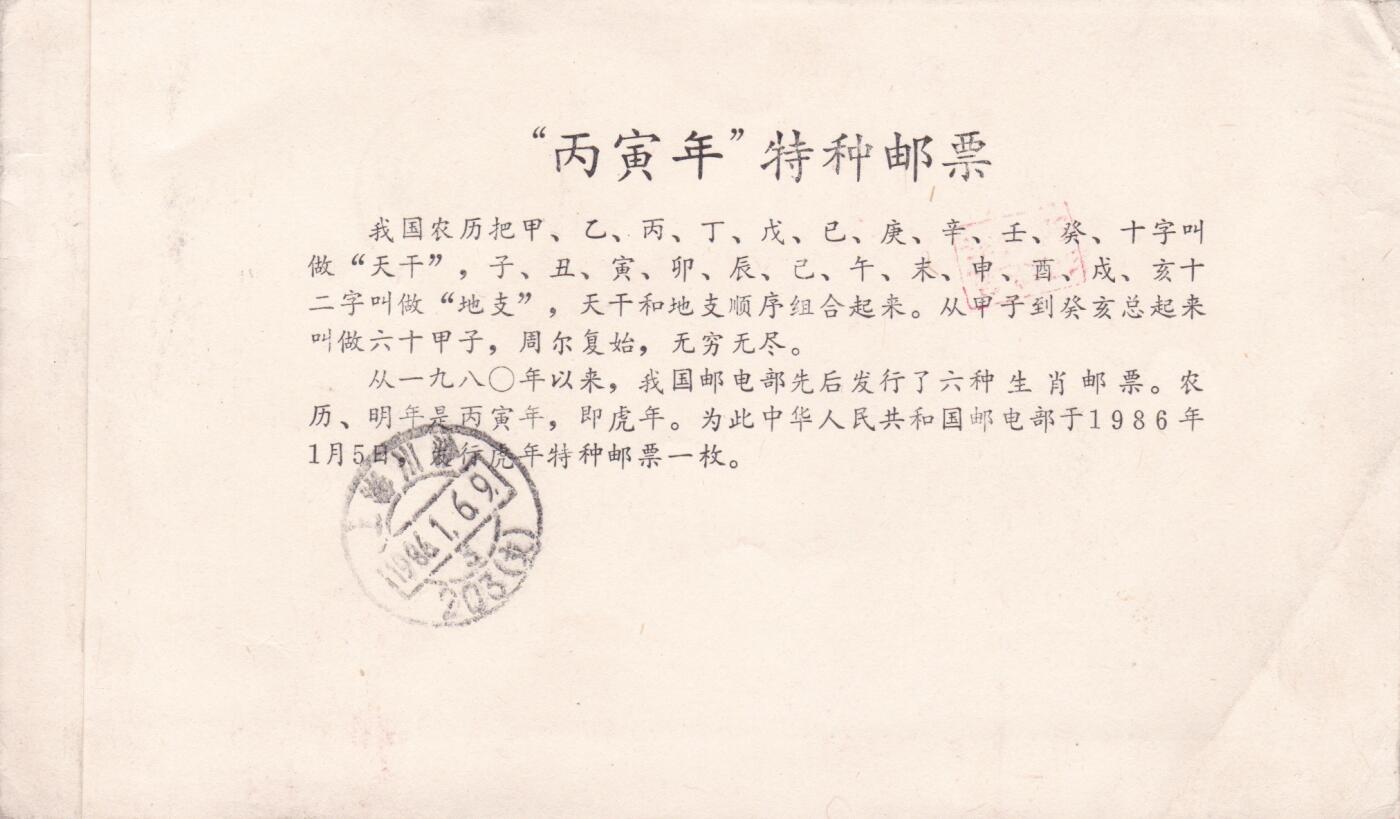 “丙寅年”特种邮票
我国农历把甲、乙、丙、丁、戊、已、庚、辛、壬、癸、十字叫
做“天干”，子、丑、寅、卯、辰、己、午、末、申、酉、戌、亥十
二字叫做“地支”，天干和地支顺序组合起来。从甲子到癸亥总起来
叫做六十甲子，周尔复始，无穷无尽。
从一九八〇年以来，我国邮电部先后发行了六种生肖邮票。农
历、明年是丙寅年，即虎年。为此中华人民共和国邮电部于1986年
1月5日，发行虎年特种邮票一枚。
1986.1.6.9.
203(支)